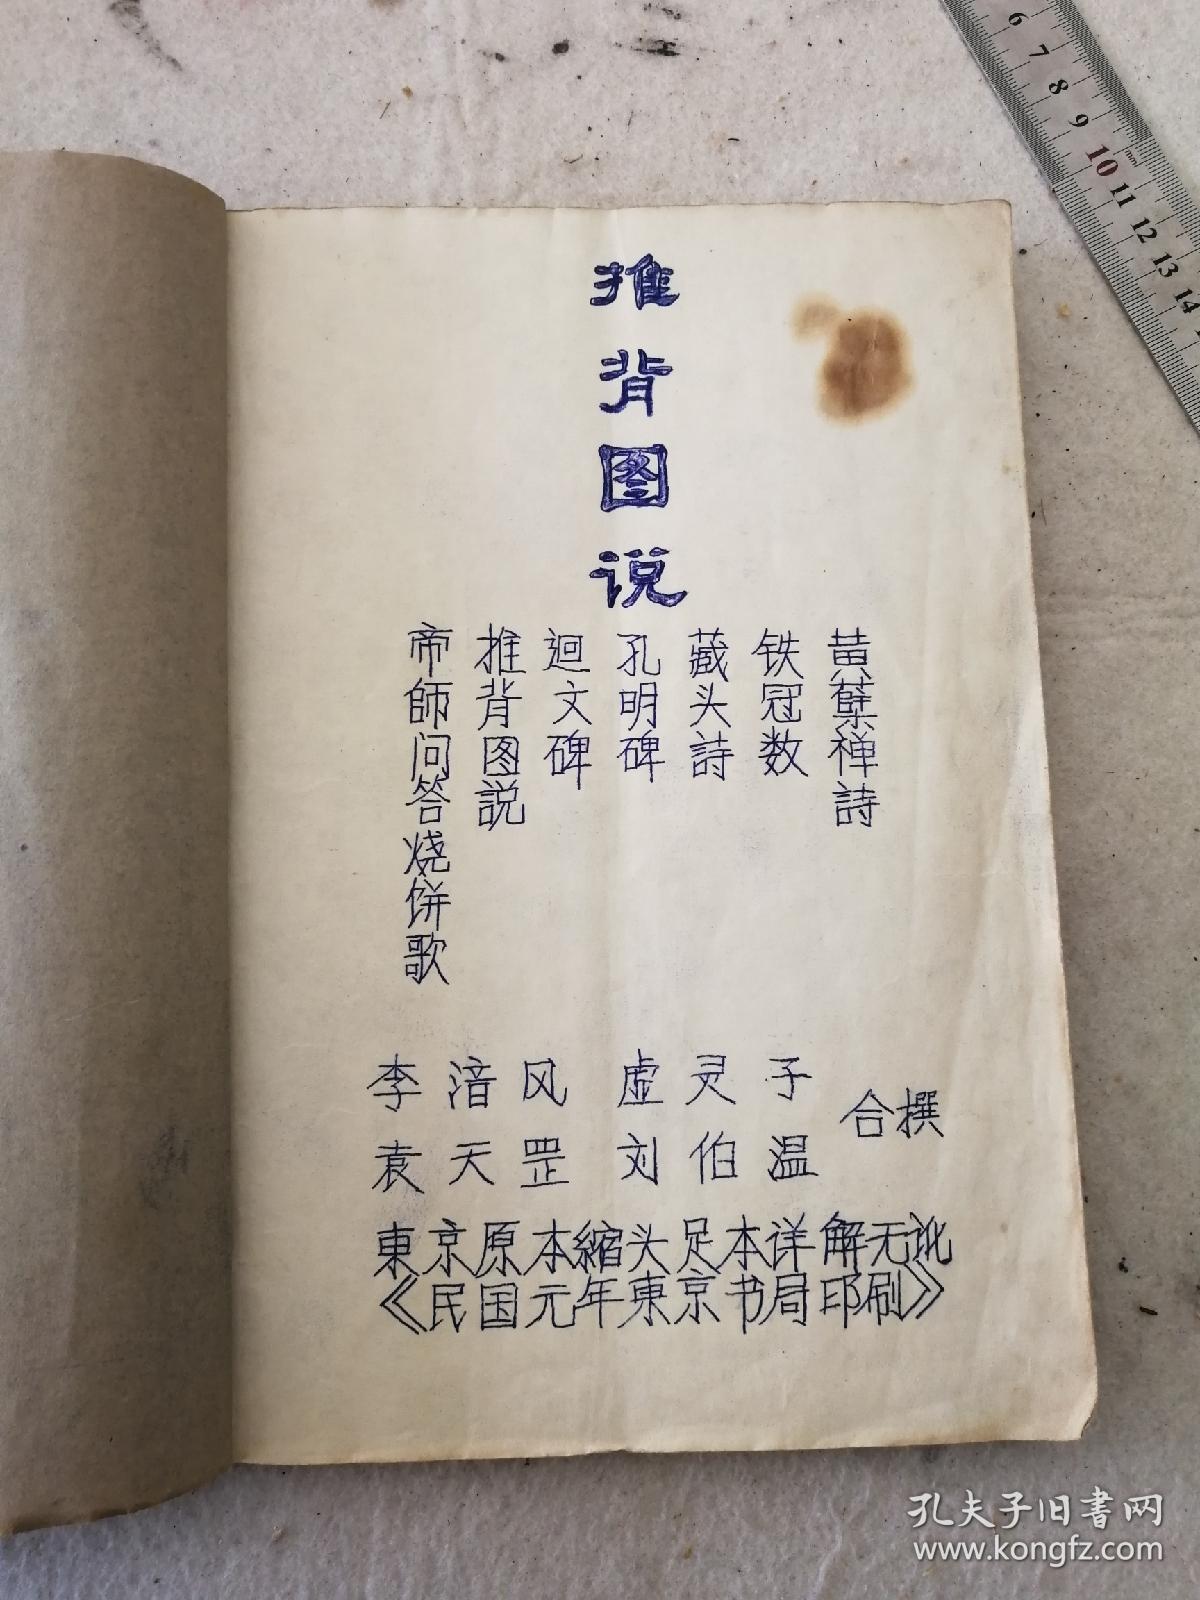 推背图说
黄蘖禅詩
铁冠数
藏头詩
孔明碑
迴文碑
推背图説
帝師问答烧饼歌
李湻风 虚灵子
袁天罡 刘伯温
合撰
東京原本縮头足本详解无讹
《民国元年東京书局印刷》
6 7 8 9 10 11 12 13 14
mm
孔夫子旧書网
www.kongfz.com